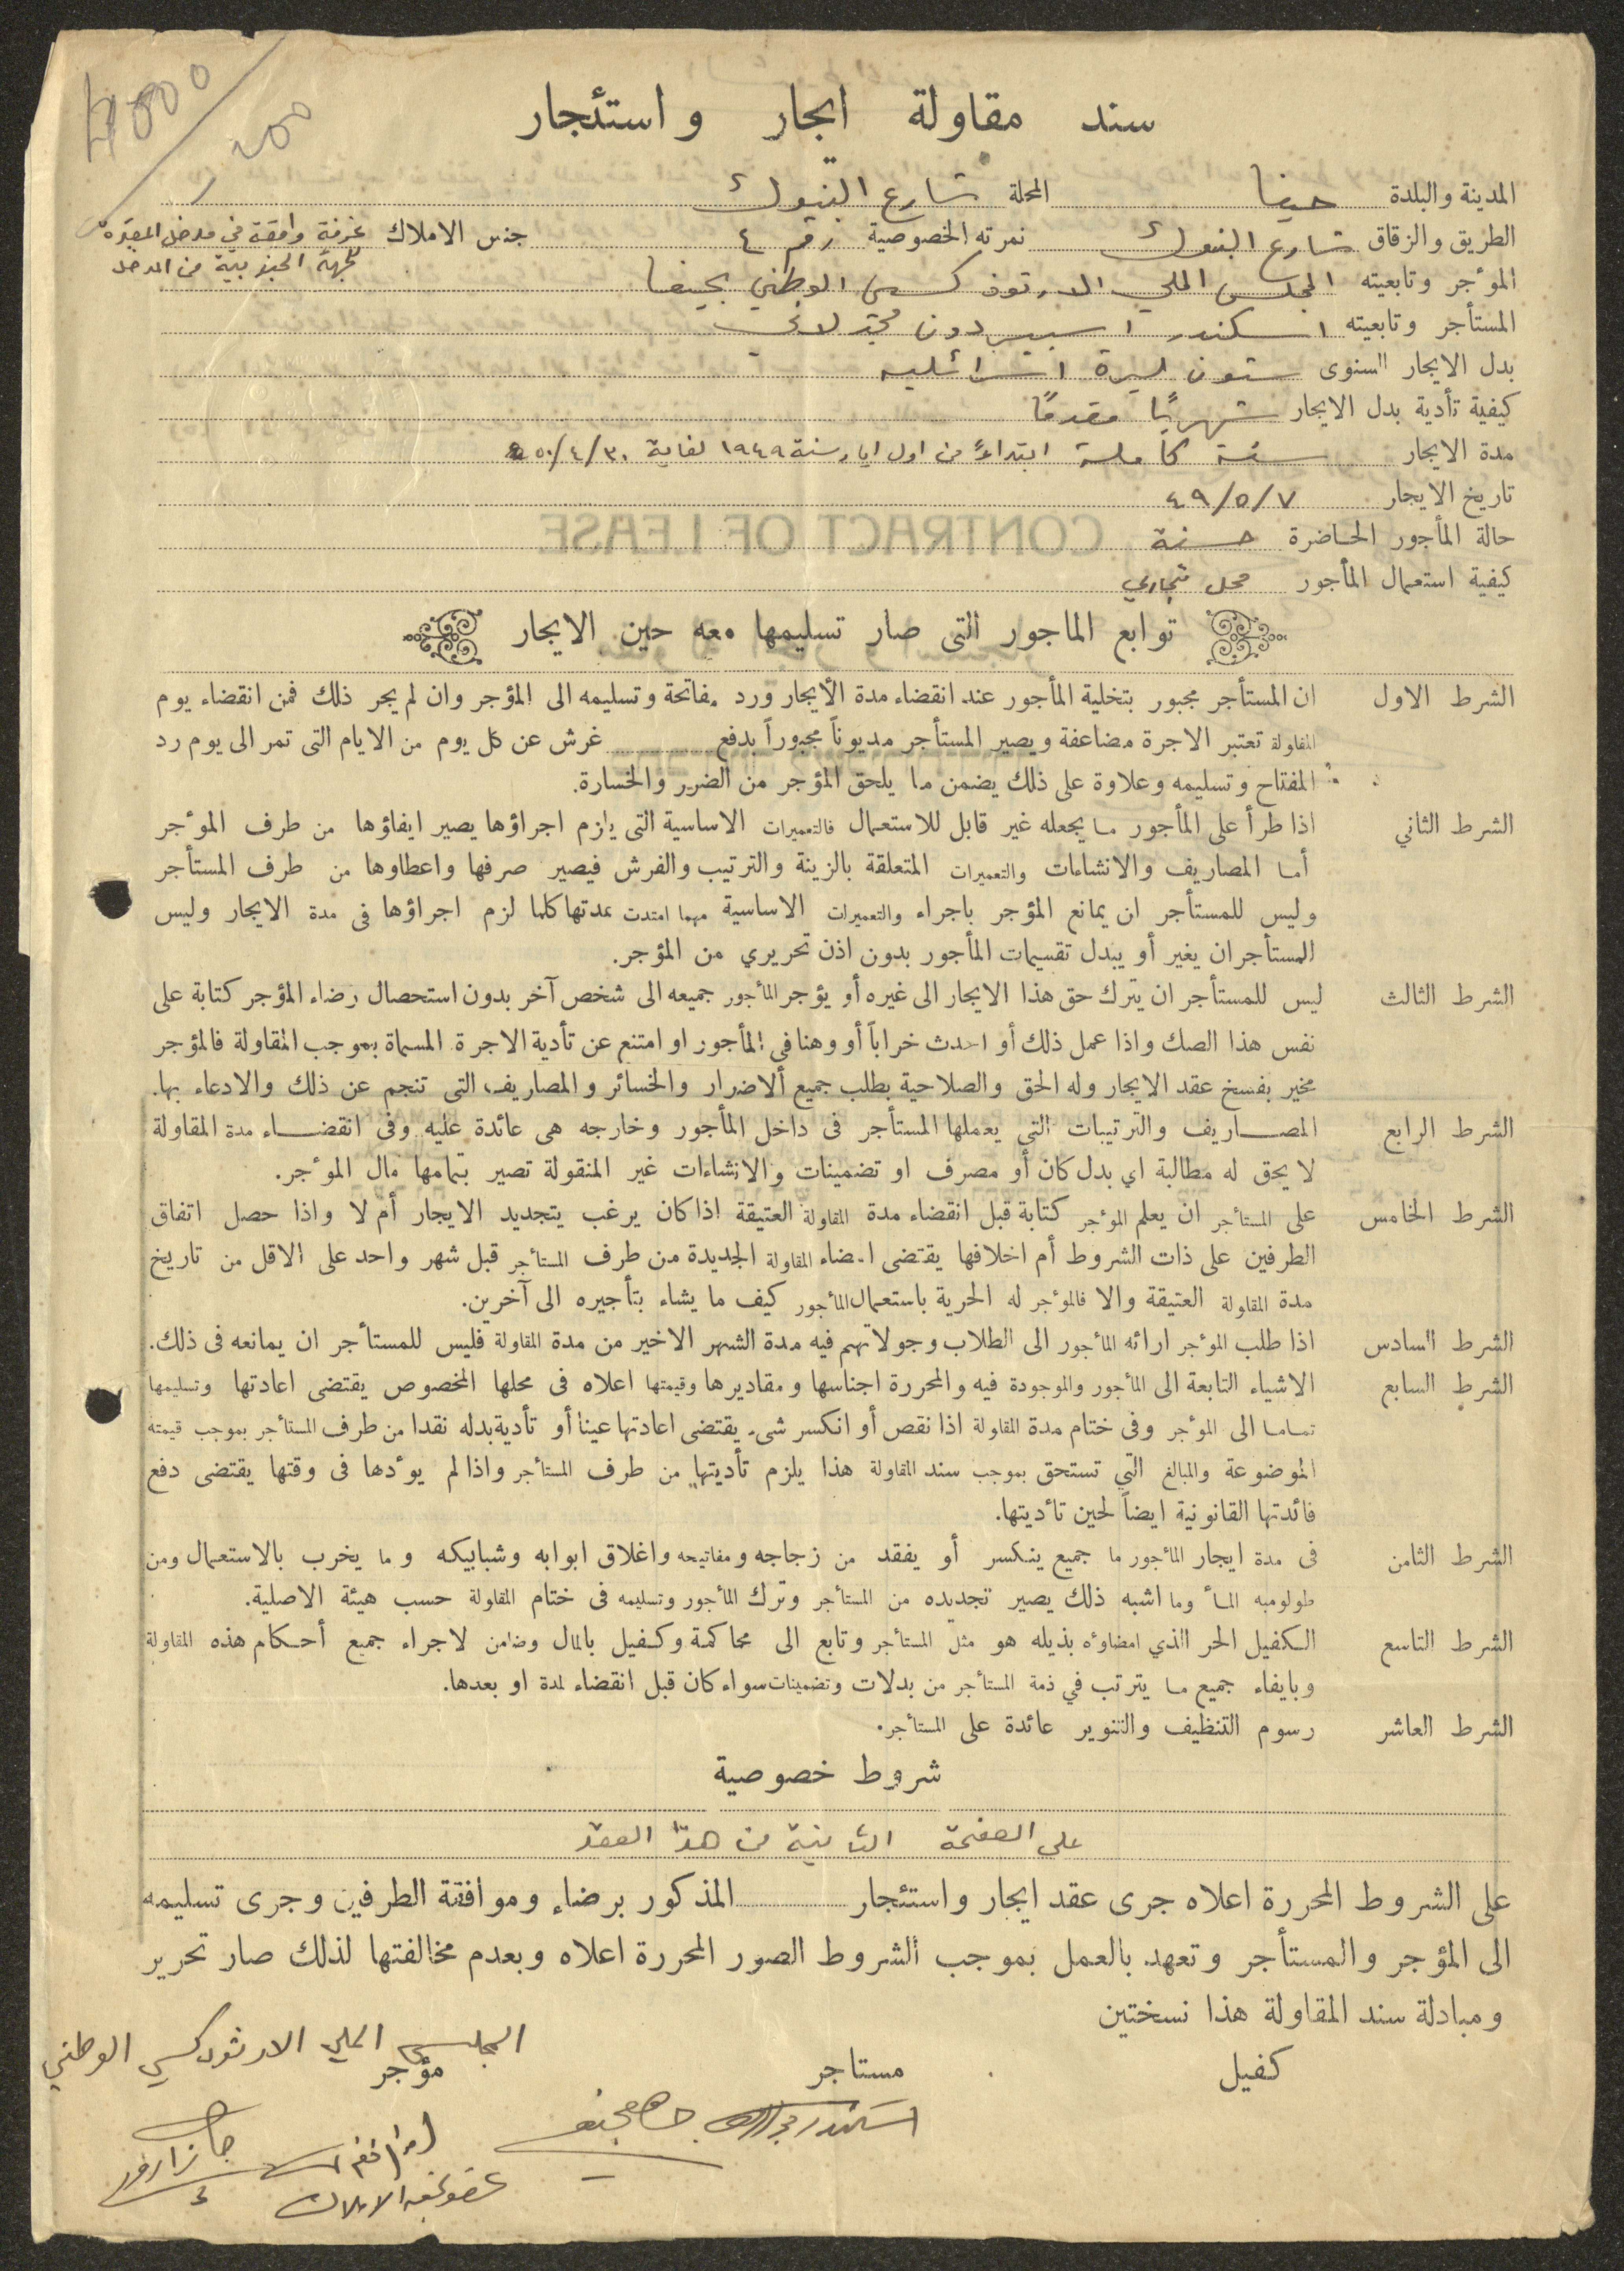 4000
200
سند مقاولة ايجار واستئجار
المدينة والبلدة حيفا المحلة شارع البنوك
الطريق والزقاق شارع البنوك نمرته الخصوصية رقم ٤ جنس الاملاك غرفة واقعة في مدخل المقبرة
للجهة الجنوبية من المدخل
المؤجر وتابعيته المجلس الملي الارثوذكسي الوطني بحيفا
المستأجر وتابعيته اسكندر اسبيردون مجدلاني
بدل الايجار السنوى ستون ليرة اسرائيليه
كيفية تأدية بدل الايجار شهريًا مقدمًا
مدة الايجار سنة كاملة ابتداءً من اول ايار سنة ١٩٤٩ لغاية ٣٠/٤/٥٠
تاريخ الايجار ٧/٥/٤٩
CONTRACT OF LEASE
حالة المأجور الحاضرة حسنة
كيفية استعمال المأجور محل تجاري
توابع الماجور التى صار تسليمها معه حين الايجار
الشرط الاول ان المستأجر مجبور بتخلية المأجور عند انقضاء مدة الأيجار ورد مفاتحة وتسليمه الى المؤجر وان لم يجر ذلك فمن انقضاء يوم
المقاولة تعتبر الاجرة مضاعفة ويصير المستأجر مديوناً مجبوراً بدفع غرش عن كل يوم من الايام التى تمر الى يوم رد
المفتاح وتسليمه وعلاوة على ذلك يضمن ما يلحق المؤجر من الضرر والخسارة.
الشرط الثاني اذا طرأ على المأجور ما يجعله غير قابل للاستعمال فالتعميرات الاساسية التى يلزم اجراؤها يصير ايفاؤها من طرف الموٴجر
أما المصاريف والانشاءات والتعميرات المتعلقة بالزينة والترتيب والفرش فيصير صرفها واعطاوها من طرف المستأجر
وليس للمستأجر ان يمانع المؤجر باجراء والتعميرات الاساسية مهما امتدت بمدتها كلما لزم اجراؤها فى مدة الايجار وليس
المستأجران يغير أو يبدل تقسيمات المأجور بدون اذن تحريري من المؤجر.
الشرط الثالث ليس للمستأجر ان يترك حق هذا الايجار الى غيره أو يؤجر المأجور جميعه الى شخص آخر بدون استحصال رضاء المؤجر كتابة على
نفس هذا الصك واذا عمل ذلك أو احدث خراباً أو وهنا فى المأجور او امتنع عن تأدية الاجرة المسماة بموجب المقاولة فالمؤجر
مخير بفسخ عقد الايجار وله الحق والصلاحية بطلب جميع ألاضرار والخسائر والمصاريف التى تنجم عن ذلك والادعاء بها.
الشرط الرابع المصاريف والترتيبات التي يعملها المستأجر فى داخل المأجور وخارجه هى عائدة عليه وفى انقضاء مدة المقاولة
لا يحق له مطالبة اي بدل كان أو مصرف او تضمينات والانشاءات غير المنقولة تصير بتمامها مال الموٴجر.
الشرط الخامس على المستأجر ان يعلم المؤجر كتابة قبل انقضاء مدة المقاولة العتيقة اذا كان يرغب يتجديد الايجار أم لا واذا حصل اتفاق
الطرفين على ذات الشروط أم اخلافها يقتضى امضاء المقاولة الجديدة من طرف المستأجر قبل شهر واحد على الاقل من تاريخ
مدة المقاولة العتيقة والا فالمؤجر له الحرية باستعمال المأجور كيف ما يشاء بتأجيره الى آخرين.
الشرط السادس اذا طلب المؤجر ارائه المأجور الى الطلاب وجولاتهم فيه مدة الشهر الاخير من مدة المقاولة فليس للمستأجر ان يمانعه فى ذلك.
الشرط السابع الاشياء التابعة الى المأجور والموجودة فيه والمحررة اجناسها ومقاديرها وقيمتها اعلاه فى محلها المخصوص يقتضى اعادتها وتسليمها
تماما الى المؤجر وفى ختام مدة المقاولة اذا نقص أو انكسر شيء يقتضى اعادتها عينا أو تأدية بدله نقدا من طرف المستأجر بموجب قيمته
الموضوعة والمبالغ التي تستحق بموجب سند المقاولة هذا يلزم تأديتها من طرف المستأجر واذا لم يوٴدها فى وقتها يقتضى دفع
فائدتها القانونية ايضاً لحين تأديتها.
الشرط الثامن فى مدة ايجار المأجور ما جميع ينكسر أو يفقد من زجاجه ومفاتيحه واغلاق ابوابه وشبابيكه وما يخرب بالاستعمال ومن
طولومبه المأ وما اشبه ذلك يصير تجديده من المستأجر وترك المأجور وتسليمه فى ختام المقاولة حسب هيئة الاصلية.
الشرط التاسع الكفيل الحر الذي امضاوٴه بذيله هو مثل المستأجر وتابع الى محاكمة وكفيل بالمال وضامن لاجراء جميع أحكام هذه المقاولة
وبايفاء جميع ما يترتب في ذمة المستأجر من بدلات وتضمينات سواء كان قبل انقضاء لمدة او بعدها.
الشرط العاشر رسوم التنظيف والتنوير عائدة على المستأجر.
شروط خصوصية
على الصفحة الثانية من هذا العقد
على الشروط المحررة اعلاه جرى عقد ايجار واستئجار المذكور برضاء وموافقة الطرفين وجرى تسليمه
الى المؤجر والمستأجر وتعهد بالعمل بموجب الشروط الصور المحررة اعلاه وبعدم مخالفتها لذلك صار تحرير
ومبادلة سند المقاولة هذا نسختين
المجلس الملي الارثوذكسي الوطني
كفيل مستاجر مؤجر
اسكندر
عضو لجنة الاملاك